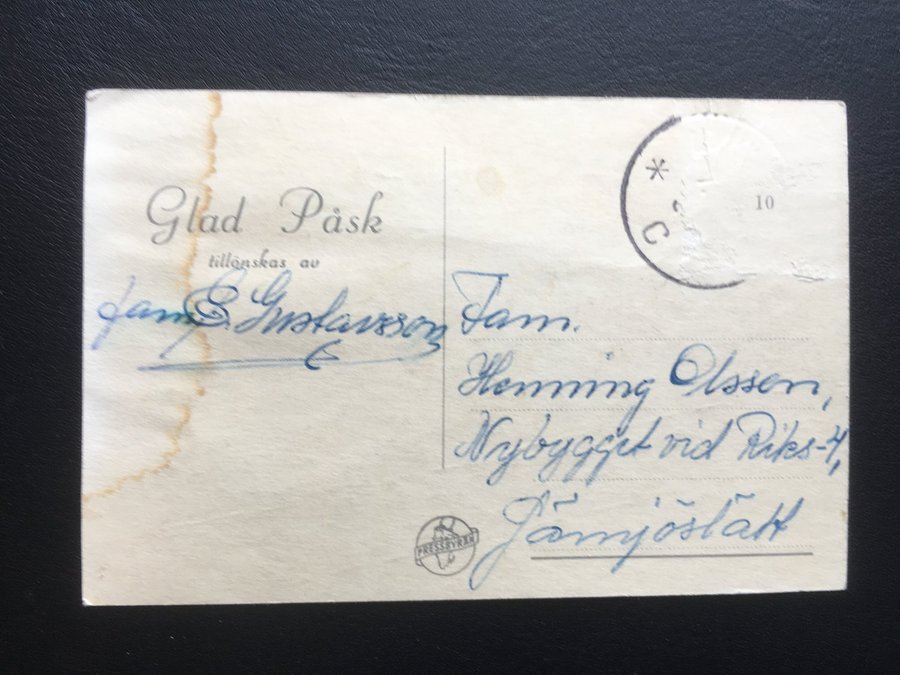 Glad Påsk
tillönskas av
fam. E. Gustavsson
* C
10
Fam.
Henning Olsson,
Nybygget vid Riks-4,
Jämjöslätt
PRESSBYRÅN